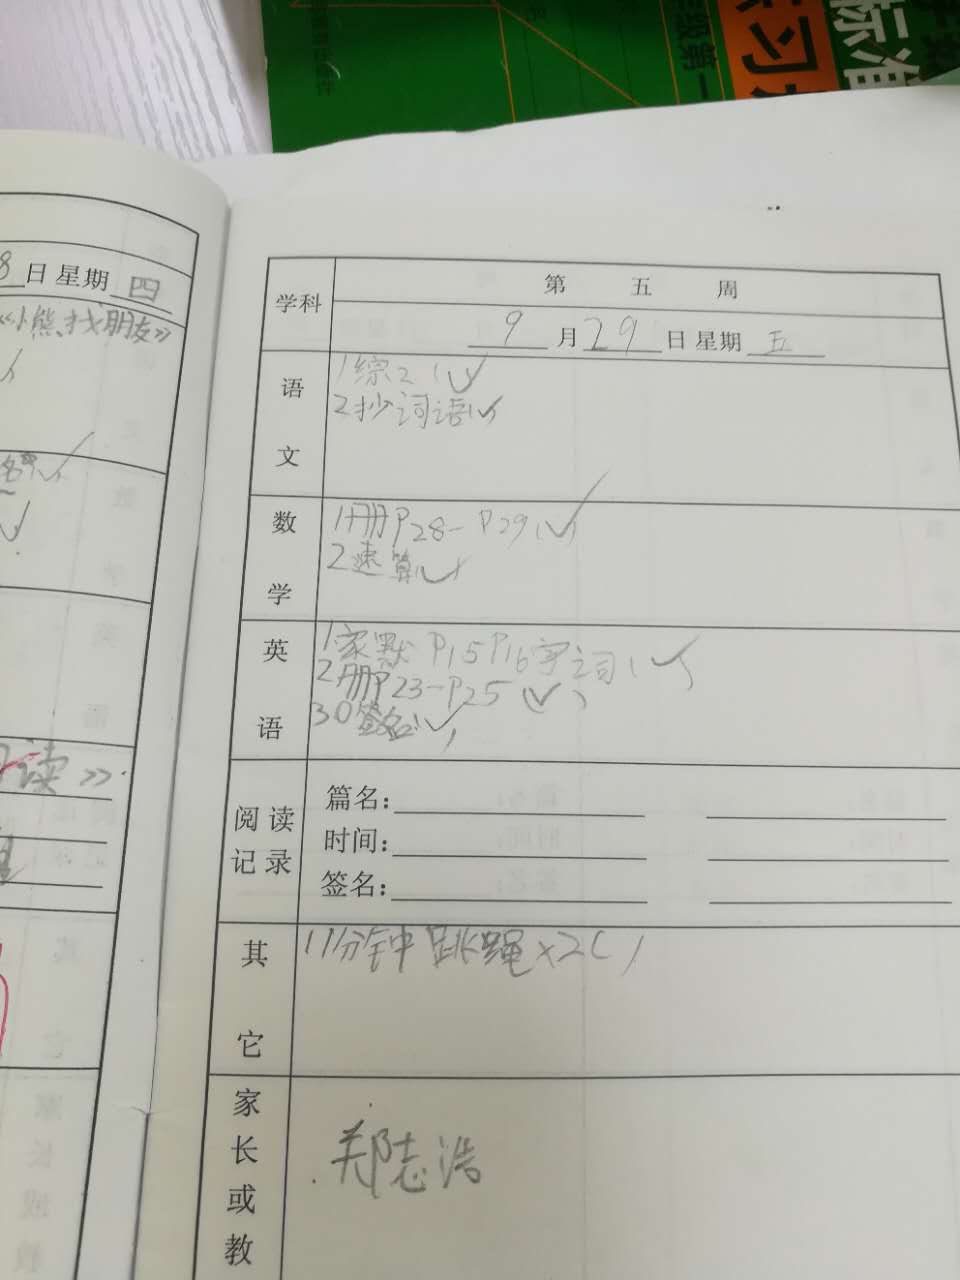 标准
练习
级第一
8日星期四
《小熊找朋友》
读》
学科
第 五 周
9月29日星期五
语文
1综2(✓)
2抄词语(✓)
数学
1册P28-P29(✓)
2速算(✓)
英语
1家默P15P16字词(✓)
2册P23-P25(✓)
30签名(✓)
阅读记录
篇名:
时间:
签名:
其它
1 1分钟跳绳×2( )
家长或教
郑志浩